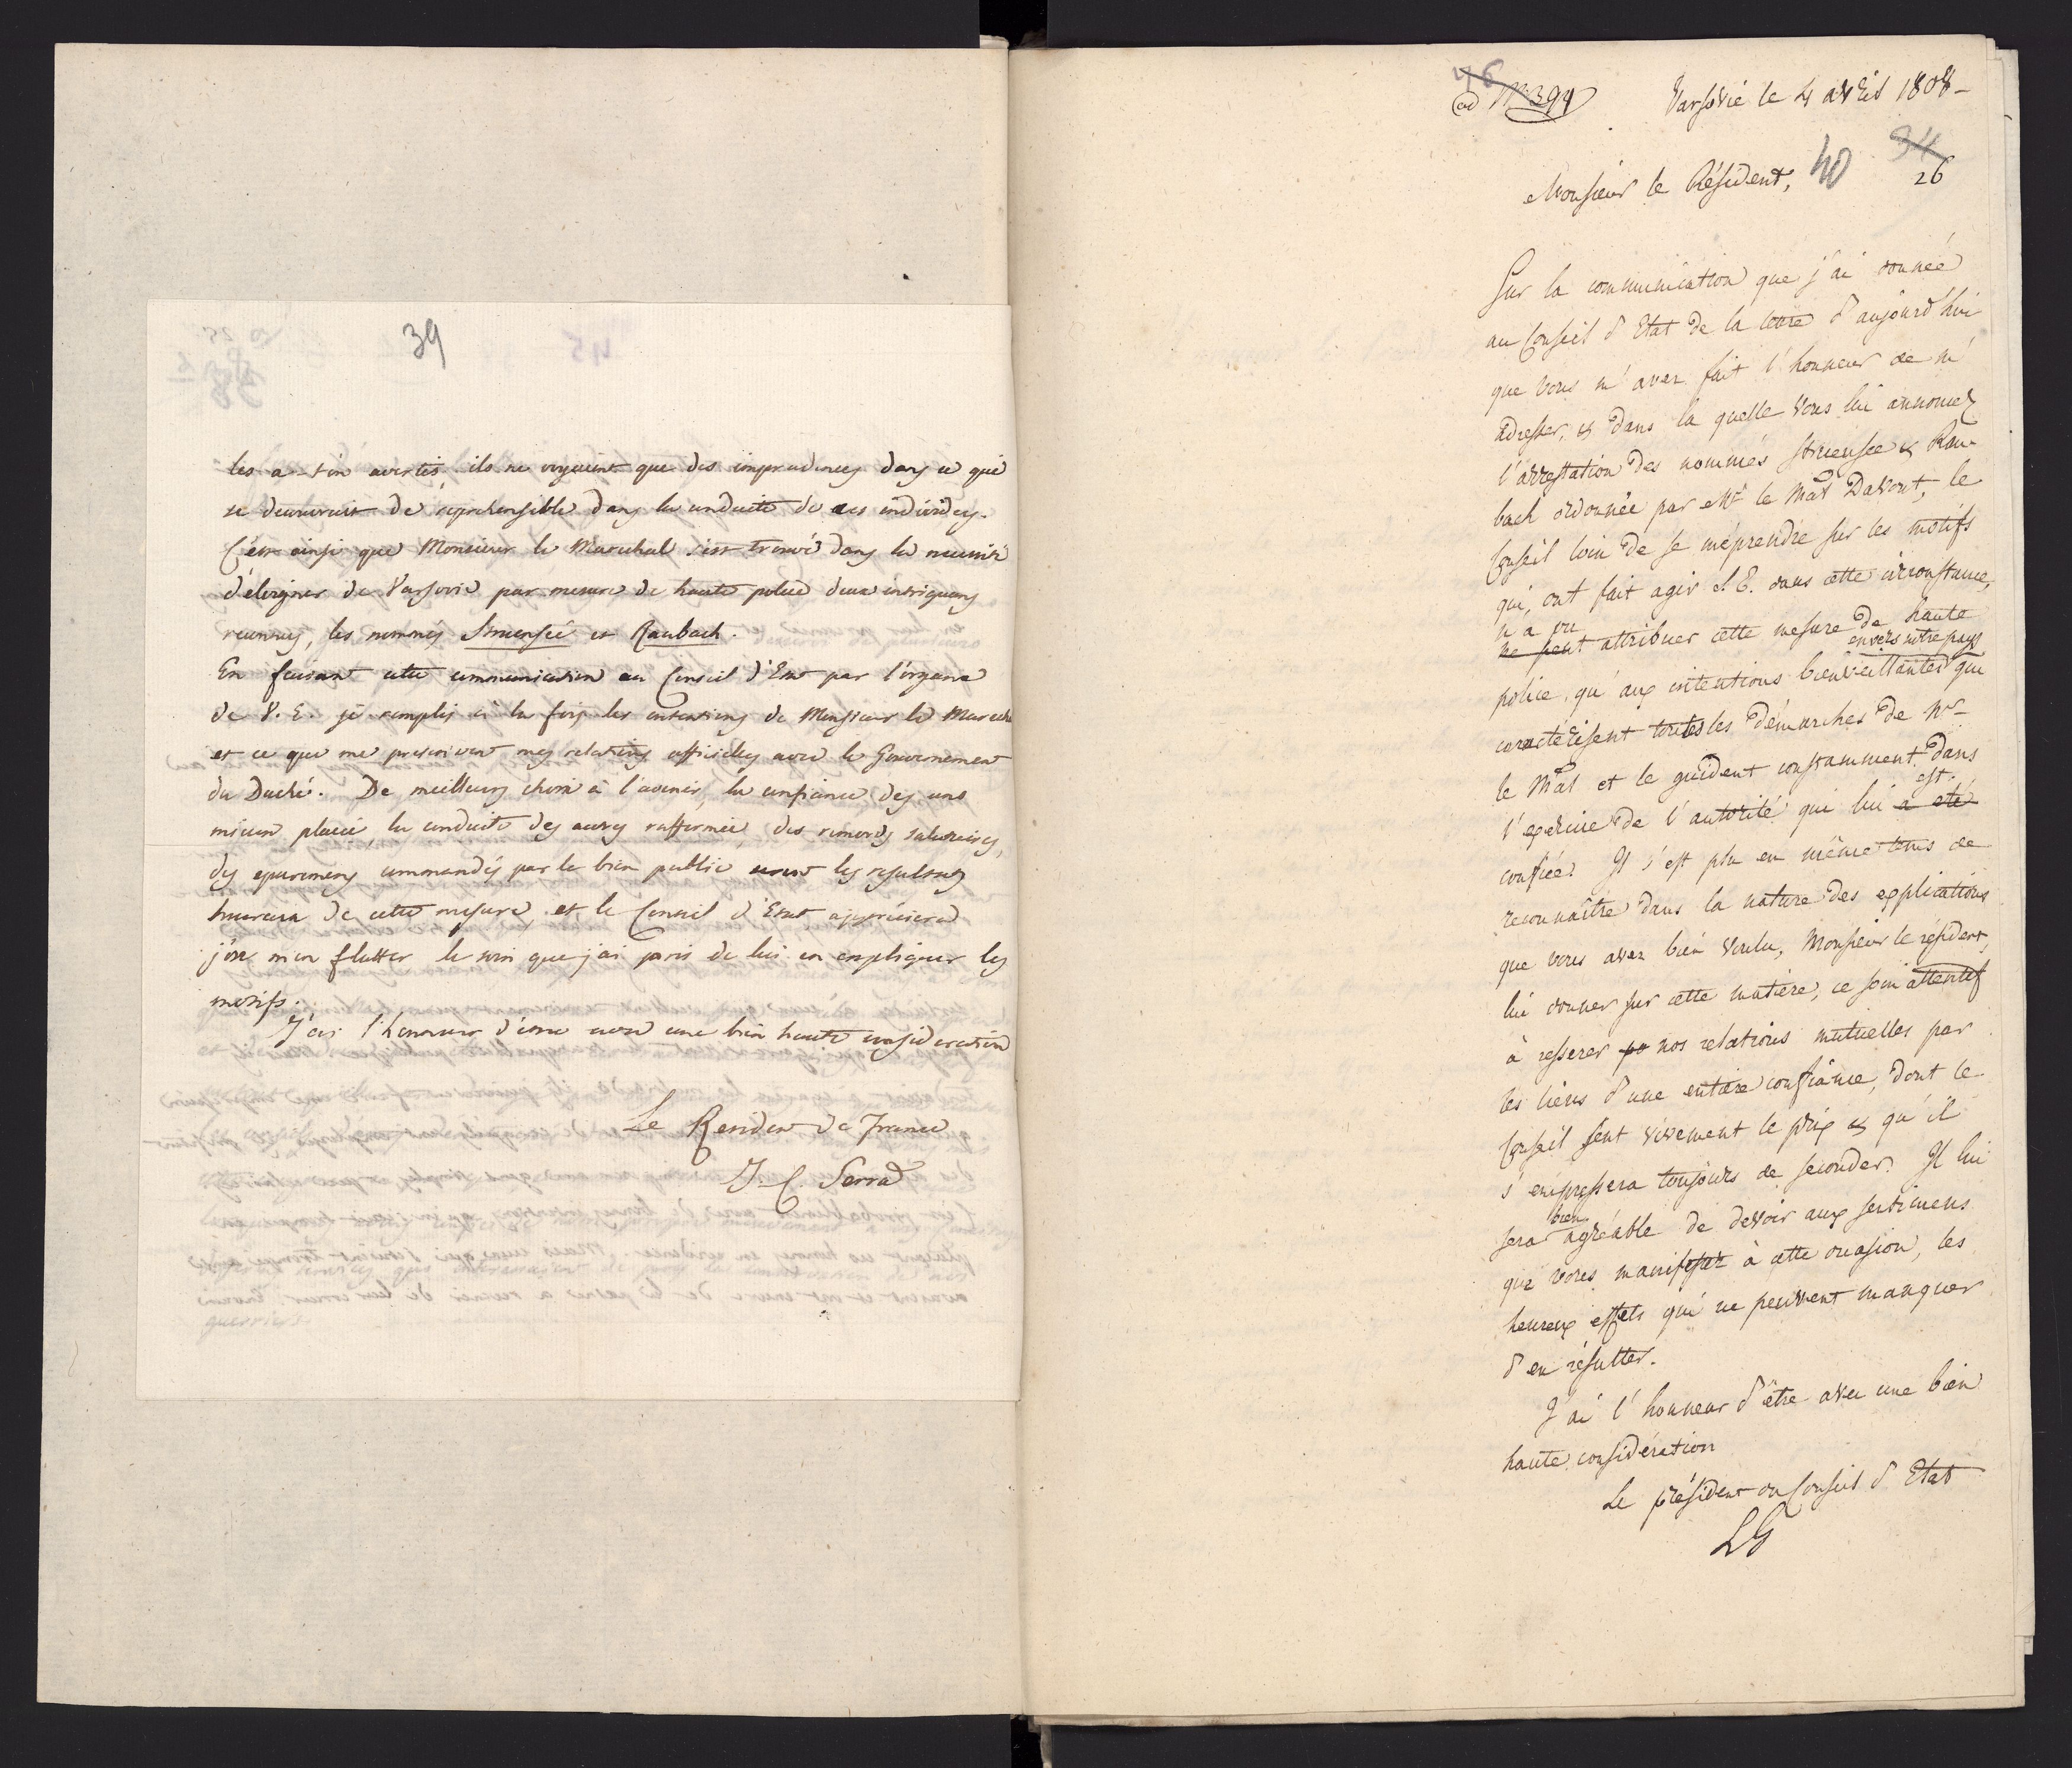 39
les a-t-on avertis, ils ne voyaient que des imprudences dans ce qui
se decouvroit de reprehensible dans la conduite de ces individus.
C'est ainsi que Monsieur le Marechal s'est trouvé dans la necessité
d'éloigner de Varsovie par mesure de haute police deux intriguans
reconnus, les nommés Struensée et Raubach.
En faisant cette communication au Conseil d'Etat par l'organe
de V. E. je remplis à la fois les intentions de Monsieur le Marechal
et ce que me prescrivent mes relations officielles avec le Gouvernement
du Duché. De meilleurs choix à l'avenir, la confiance des uns
mieux placée, la conduite des autres raffermie, des remords salutaires,
des epuremens commandés par le bien public seront les resultats
heureux de cette mesure, et le Conseil d'Etat appréciera
j'ose m'en flatter le soin que j'ai pris de lui en expliquer les
motifs.
J'ai l'honneur d'être avec une bien haute consideration
Le Resident de France
J. C. Serra
46
ad N 394
Varsovie le 4 avril 1808 –
Monsieur le Résident,
40
34
26
Sur la communication que j'ai donnée
au Conseil d'Etat de la lettre d'aujourd'hui
que vous m'avez fait l'honneur de m'
adresser, & dans la quelle vous lui annoncez
l'arrestation des nommés Struensee & Rau-
bach ordonnée par Mr le Mal Davout, le
Conseil loin de se méprendre sur les motifs
qui, ont fait agir S. E. dans cette circonstance,
n'a pu
ne peut attribuer cette mesure de haute
envers notre pays
police, qu'aux intentions bienveillantes qui
caractérisent toutes les démarches de Mr
le Mal et le guident constamment dans
est
l'exercice de l'autorité qui lui a été
confiée. Il s'est plu en même tems de
reconnaître dans la nature des explications
que vous avez bien voulu, Monsieur le résident,
lui donner sur cette matière, ce soin attentif
à resserer po nos relations mutuelles par
les liens d'une entière confiance, dont le
Conseil sent vivement le prix & qu'il
s'empressera toujours de seconder. Il lui
bien
sera agréable de devoir aux sentimens
que vous manifestez à cette occasion, les
heureux effets qui ne peuvent manquer
d'en résulter.
J'ai l'honneur d'être avec une bien
haute considération
Le président du Conseil d'Etat
LG